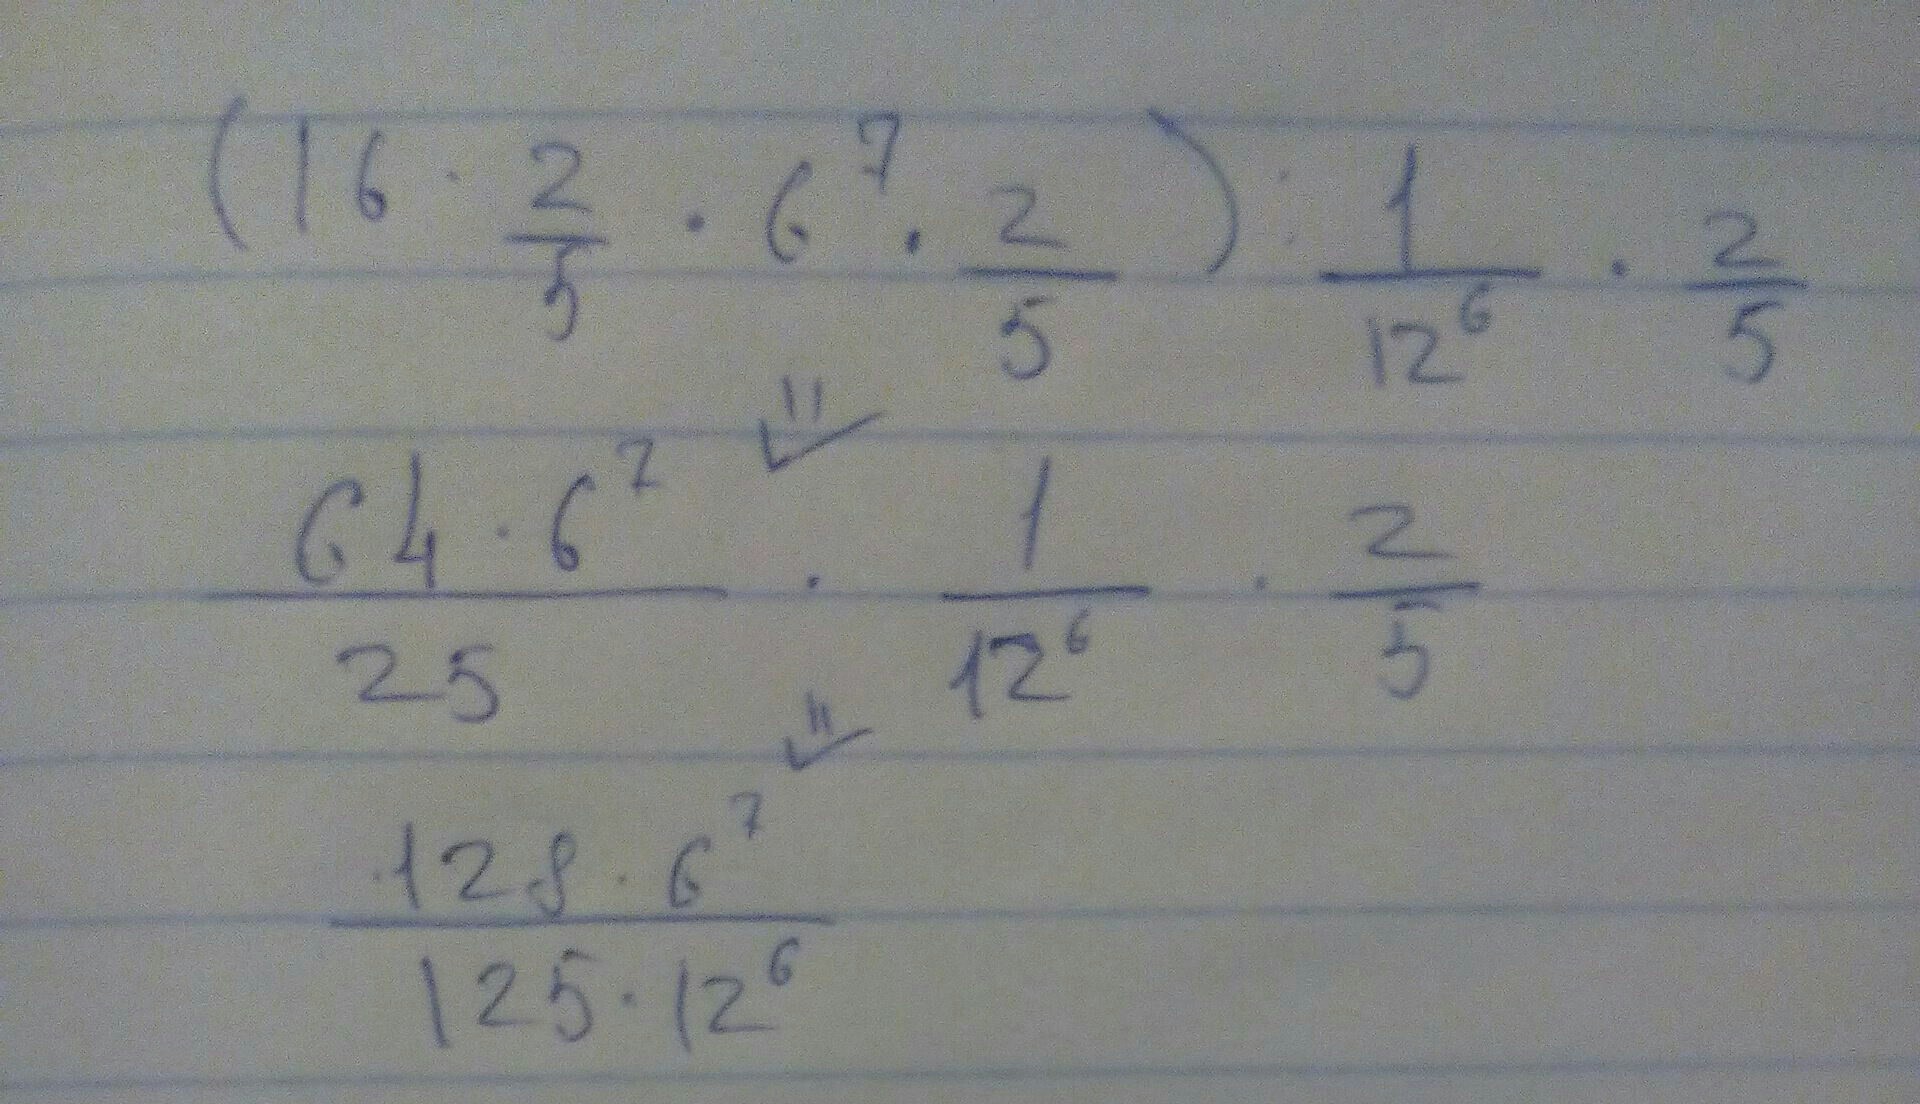 (16 · 2/5 · 6^7 · 2/5) : 1/12^6 · 2/5
=
64 · 6^7/25 · 1/12^6 · 2/5
=
128 · 6^7/125 · 12^6